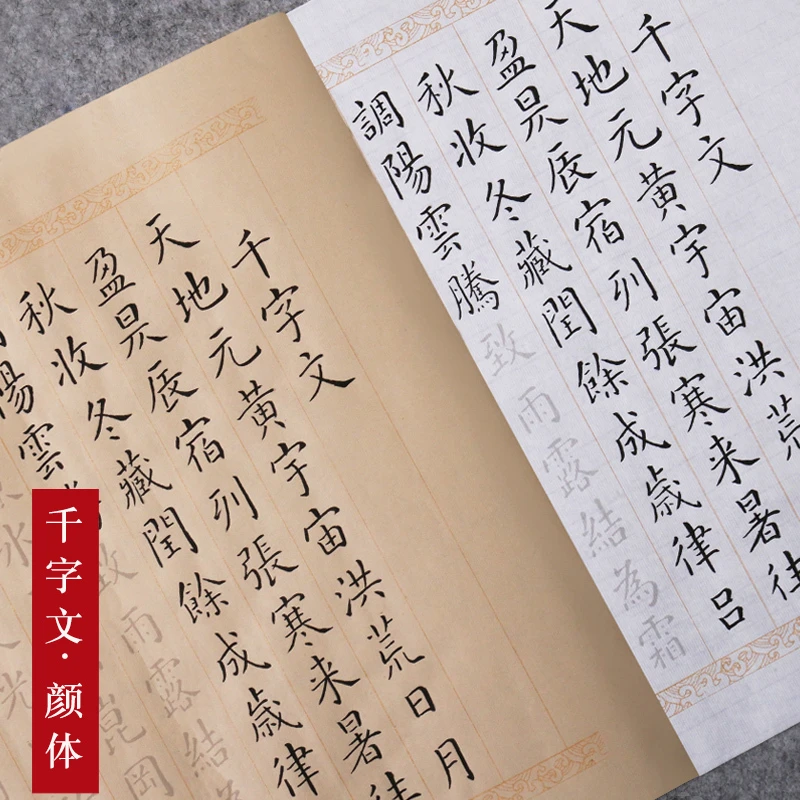 千字文
天地元黄宇宙洪荒
盈昃辰宿列張寒来暑往
秋收冬藏閏餘成歲律吕
調陽雲騰致雨露結為霜
千字文
天地元黄宇宙洪荒日月
盈昃辰宿列張寒来暑往
秋收冬藏閏餘成歲律
陽雲致雨露結
水崑岡
光
千字文·颜体